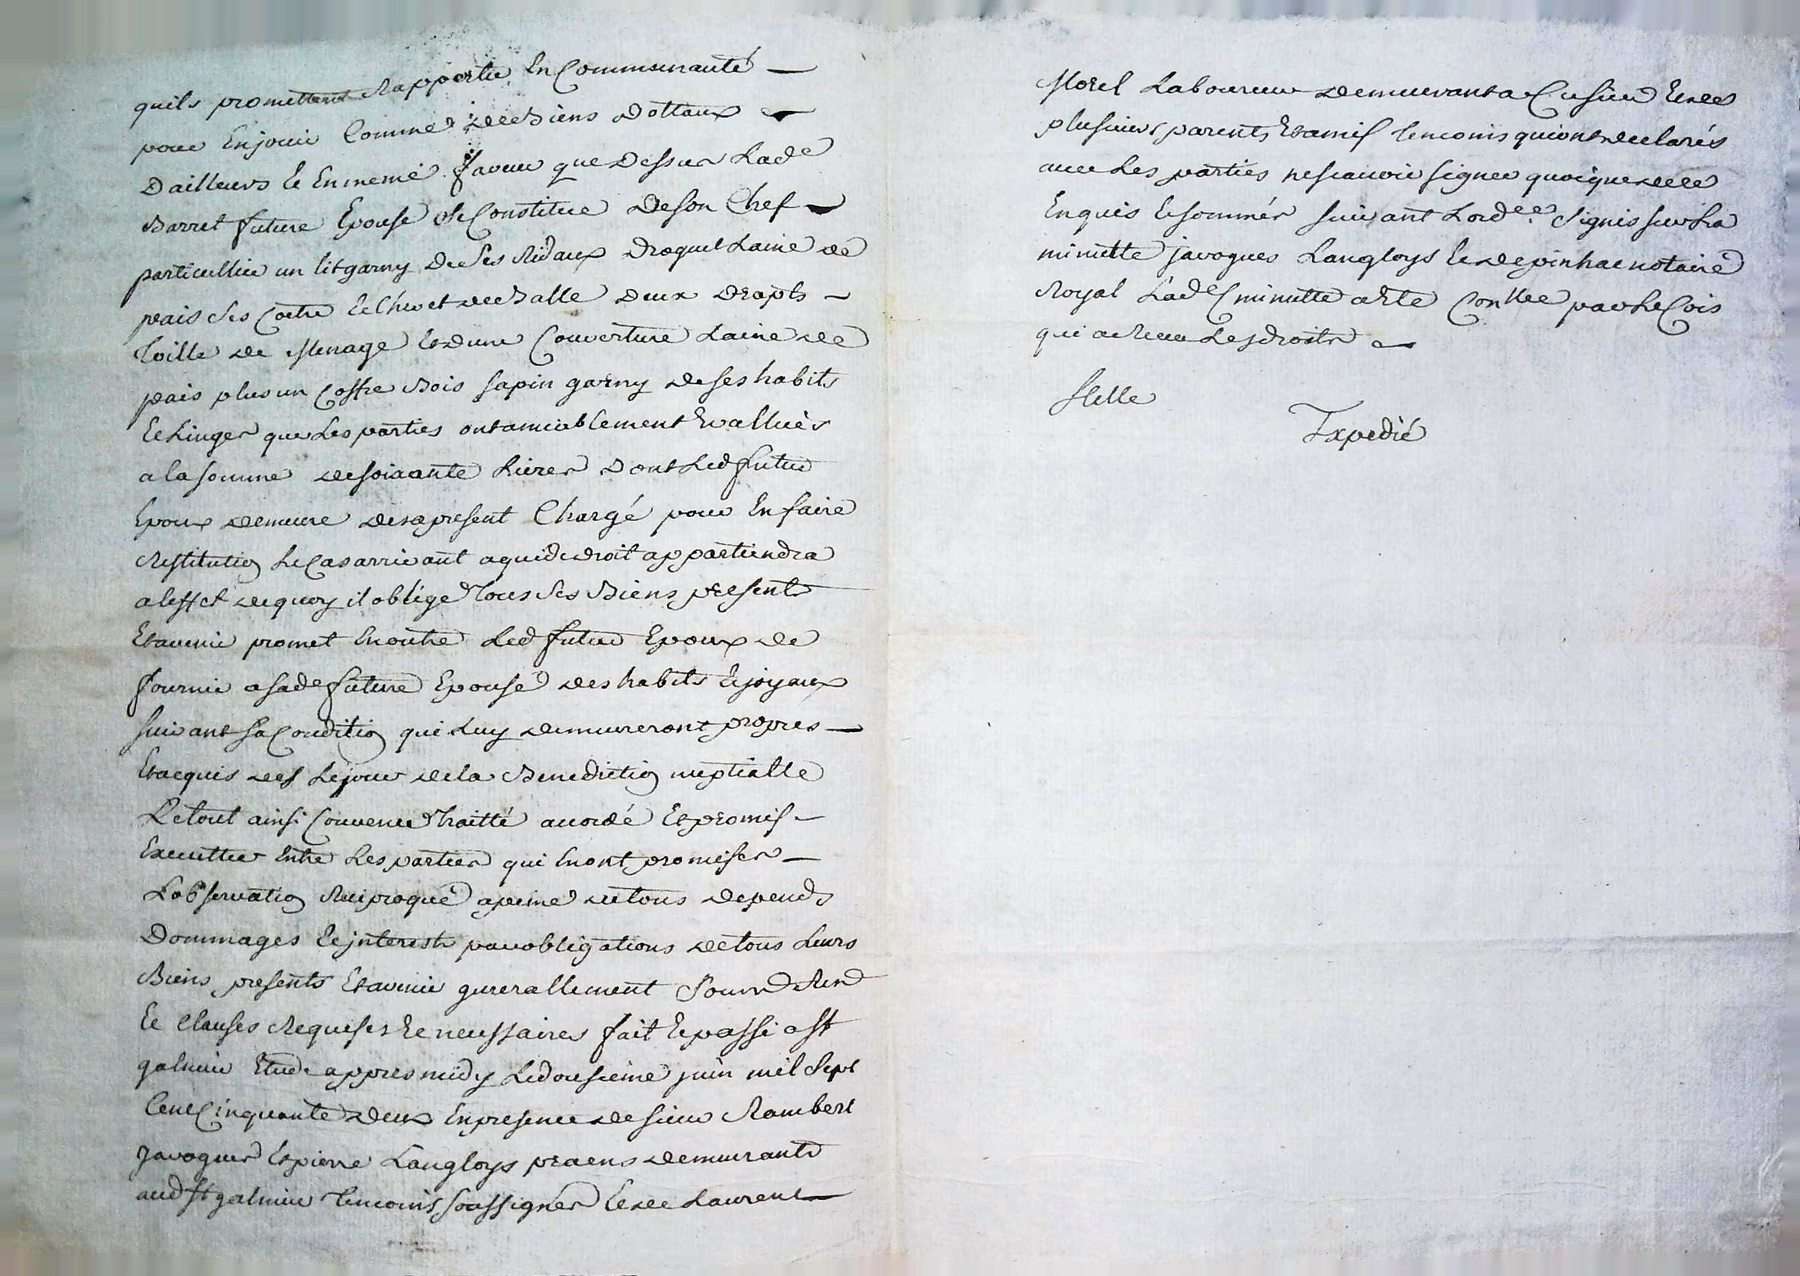 quils promettent Rapporter En Communauté —
pour Enjouir Comme de Biens dottaux —
d'ailleurs Et En meme faveur que dessus Lade
Barret future Epouse se Constitue de son Chef —
particullier un lit garny de ses Ridaux droguet Laine de
pais ses Coetre Et Chevet de Balle deux draps —
toille de Menage Et d'une Couverture Laine de
pais plus un Coffre Bois sapin garny de ses habits
Et Linges que Les parties ont amiablement Evallués
a la somme de soixante Livres dont Led futur
Epoux demeure des apresent Chargé pour En faire
Restitution Le Cas arrivant a qui de droit appartiendra
a leffet de quoy il oblige tous ses Biens presents
Et avenir promet En outre Led futur Epoux de
fournir a sade future Epouse des habits Et joyaux
suivant sa Condition qui Luy demeureront propres —
Et acquis des Le jour de la Benediction nuptialle
Le tout ainsi Convenu traitté accordé Et promis —
Executter Entre Les parties qui En ont promises —
L'observation Reciproque a peine de tous depends
Dommages Et jnterests par obligations de tous Leurs
Biens presents Et avenir generallement soum Ren
Et Clauses Requises Et necessaires fait Et passé a St
galmier Etude appres midy Le dousieme juin mil sept
Cent Cinquante deux En presence de sieur Rambert
Javogues Et pierre Langloys praens demeurants
aud St galmier temoins soussignes Et de Laurent —
Morel Laboureur demeurant a Cusieu Et de
plusieurs parents Et amis temoins qui ont declarés
avec Les parties ne scavoir signer quoique de ce
Enquis Et sommés suivant Lordee signés sur La
minutte javogues Langloys Et depinhac notaire
Royal Lade minutte a Eté Conllee par Le Cois
qui a Receu Les droits —
Scelle
Expedié